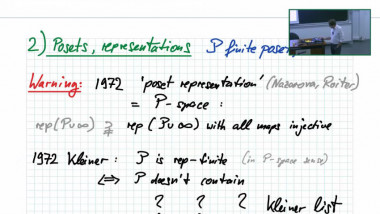 2) Posets, representations P finite poset
Warning: 1972 'poset representation' (Nazarova, Roiter)
= P-space :
rep(P∪∞) ⊋ rep(P∪∞) with all maps injective
1972 Kleiner : P is rep-finite (in P-space sense)
⟺ P doesn't contain
? ? ? Kleiner list